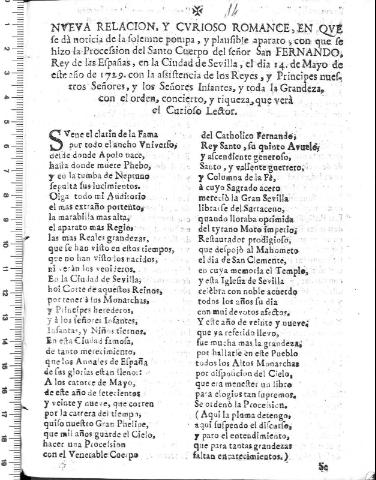 16
NUEVA RELACION, Y CURIOSO ROMANCE, EN QUE
se dà noticia de la solemne pompa, y plausible aparato, con que se
hizo la Procession del Santo Cuerpo del señor San FERNANDO,
Rey de las Españas, en la Ciudad de Sevilla, el dia 14. de Mayo de
este año de 1729. con la asistencia de los Reyes, y Principes nues-
tros Señores, y los Señores Infantes, y toda la Grandeza,
con el orden, concierto, y riqueza, que verà
el Curioso Lector.
SVene el clarin de la Fama
por todo el ancho Vniverso,
desde donde Apolo nace,
hasta donde muere Phebo,
y en la tumba de Neptuno
sepulta sus lucimientos.
Oiga todo mi Auditorio
el mas extraño portento,
la marabilla mas alta,
el aparato mas Regio,
las mas Reales grandezas,
que se han visto en estos tiempos,
que no han visto los nacidos,
ni veràn los venideros.
En la Ciudad de Sevilla,
hoi Corte de aquestos Reinos,
por tener à los Monarchas,
y Principes herederos,
y à los señores Infantes,
Infantas, y Niños tiernos.
En esta Ciudad famosa,
de tanto merecimiento,
que los Annales de España
de sus glorias estàn llenos:
A los catorce de Mayo,
de este año de setecientos
y veinte y nueve, que corren
por la carrera del tiempo,
quiso nuestro Gran Phelipe,
que mil años guarde el Cielo,
hacer una Procession
con el Venerable Cuerpo
del Catholico Fernando,
Rey Santo, su quinto Avuelo,
y ascendiente generoso,
Santo, y valiente guerrero,
y Columna de la Fè,
à cuyo Sagrado acero
mereciò la Gran Sevilla
librarse del Sarraceno,
quando lloraba oprimida
del tyrano Moro imperio;
Restaurador prodigioso,
que despojò al Mahometo
el dia de San Clemente,
en cuya memoria el Templo,
y esta Iglesia de Sevilla
celèbra con noble acuerdo
todos los años su dia
con mui devotos afectos.
Y este año de veinte y nueve,
que ya referido llevo,
fue mucha mas la grandeza;
por hallarse en este Pueblo
todos los Altos Monarchas
por disposicion del Cielo,
que era menester un libro
para elogios tan supremos.
Se ordenò la Procession.
(Aqui la pluma detengo,
aqui suspendo el discurso,
y paro el entendimiento,
que para tantas grandezas
faltan encarecimientos.)
Se